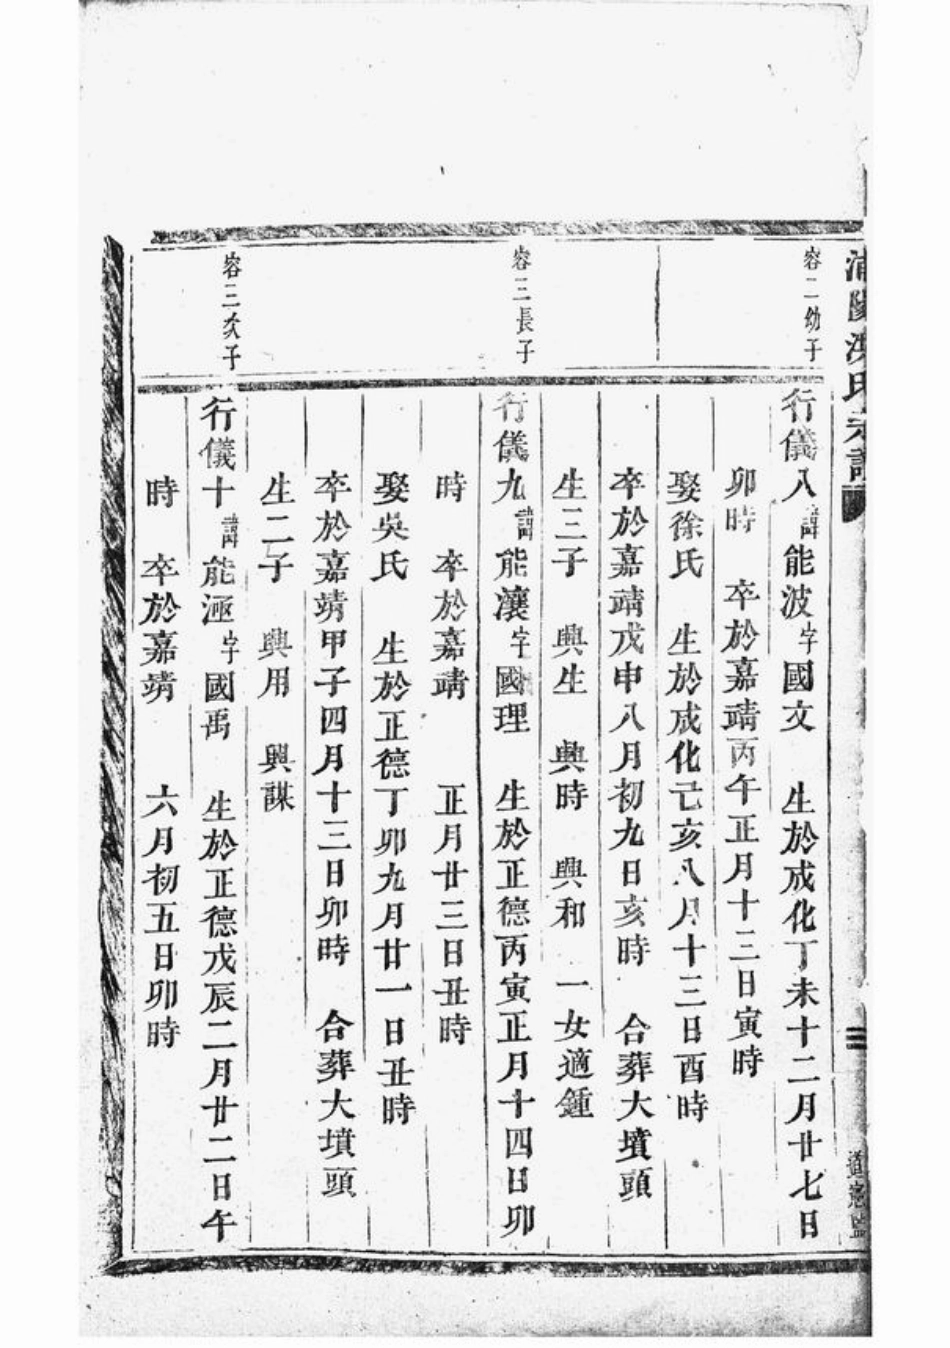 容二幼子
行儀八諱能波字國文 生於成化丁未十二月廿七日
卯時 卒於嘉靖丙午正月十三日寅時
娶徐氏 生於成化己亥八月十三日酉時
卒於嘉靖戊申八月初九日亥時 合葬大墳頭
生三子 興生 興時 興和 一女適鍾
容三長子
行儀九諱能瀼字國理 生於正德丙寅正月十四日卯
時 卒於嘉靖 正月廿三日丑時
娶吳氏 生於正德丁卯九月廿一日丑時
卒於嘉靖甲子四月十三日卯時 合葬大墳頭
生二子 興用 興謀
容三次子
行儀十諱能涵字國禹 生於正德戊辰二月廿二日午
時 卒於嘉靖 六月初五日卯時